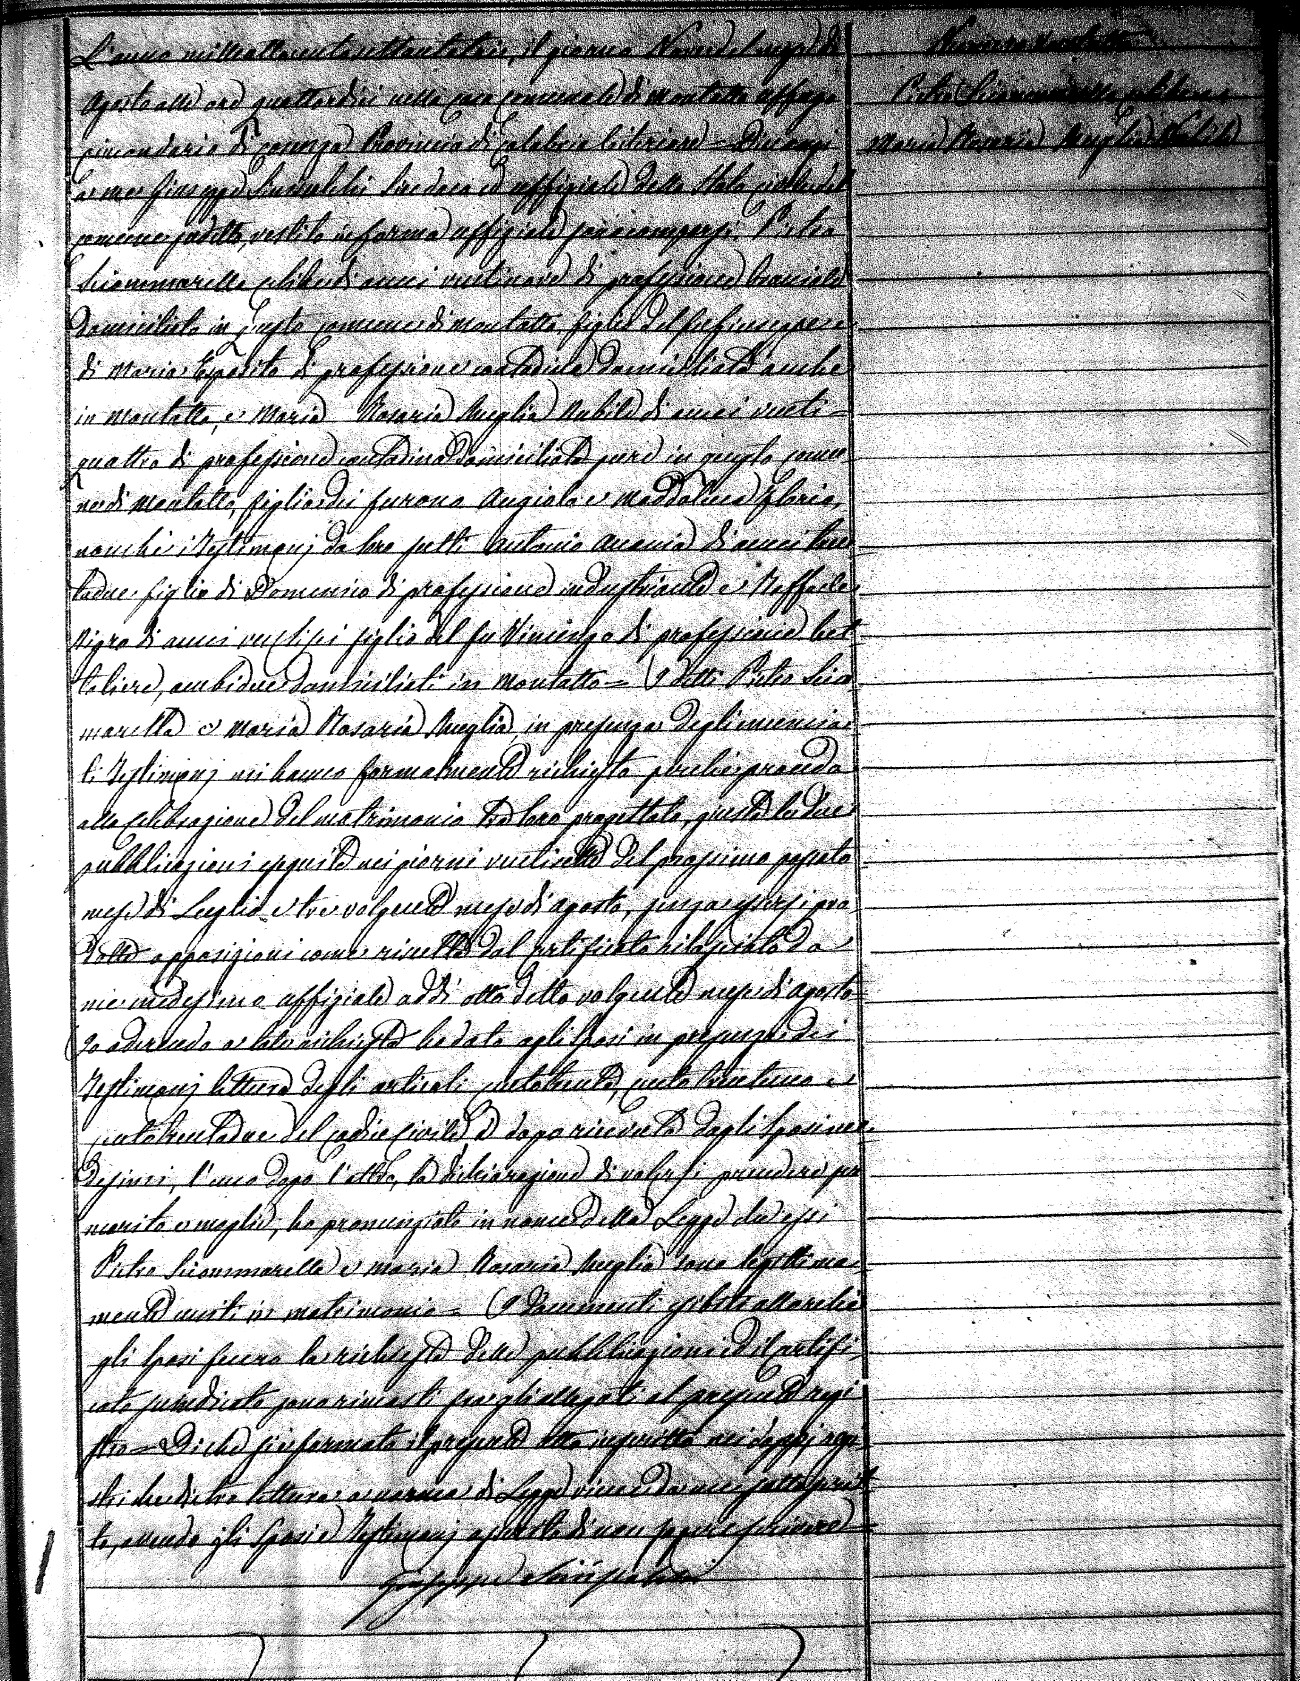 L'anno milleottocentosettantatrè, il giorno Nove del mese di
Agosto alle ore quattordici nella casa comunale di Montalto Uffugo
circondario di Cosenza Provincia di Calabria Citeriore = Dinanzi
a me Giuseppe Sindaco ed uffiziale dello Stato civile del
comune sudetto, vestito in forma uffiziale sono comparsi. Pietro
Sicommarella celibe di anni ventinove di professione bracciale
domiciliato in questo comune di Montalto, figlio del fu Giuseppe e
di Maria Esposito di professione contadina domiciliata anche
in Montalto, e Maria Rosaria Nubile di anni venti=
quattro di professione contadina domiciliata pure in questo comu
ne di Montalto, figlia dei furono Angiolo e Maddalena Gloria,
nonchè i Testimonj da loro scelti Antonio Anania di anni tren
tadue figlio di Domenico di professione industriante e Raffaele
Nigro di anni figlio del fu Vincenzo di professione bet
toliere, ambidue domiciliati in Montalto = I detti Pietro Sico
marella e Maria Rosaria in presenza degli enuncia
ti Testimonj mi hanno formalmente richiesto perchè proceda
alla celebrazione del matrimonio tra loro progettato, giusta le due
pubblicazioni eseguite nei giorni ventisette del prossimo passato
mese di Luglio e tre volgente mese di agosto, senza essersi pro
dotte opposizioni come risulta dal certificato rilasciato da
me medesimo uffiziale addì otto detto volgente mese di agosto
Io aderendo a tale richiesta ho dato agli sposi in presenza dei
Testimonj lettura degli articoli centotrenta, centotrentuno e
centotrentadue del codice civile e dopo ricevuta dagli Sposi me
desimi, l'uno dopo l'altro, la dichiarazione di volersi prendere per
marito e moglie, ho pronunziato in nome della Legge che essi
Pietro Sicommarella e Maria Rosaria sono legittima
mente uniti in matrimonio = I documenti esibiti allorchè
gli Sposi fecero la richiesta delle pubblicazioni ed il certifi
cato sono rimasti fra gli allegati al presente regi
stro = Di che si è formato il presente atto inscritto nei doppj regi
stri che dietro lettura a norma di Legge viene da me sottoscrit
to, avendo gli Sposi e Testimonj asserito di non sapere scrivere =
Giuseppe
Pietro Sicommarella celibe e
Maria Rosaria Nubile